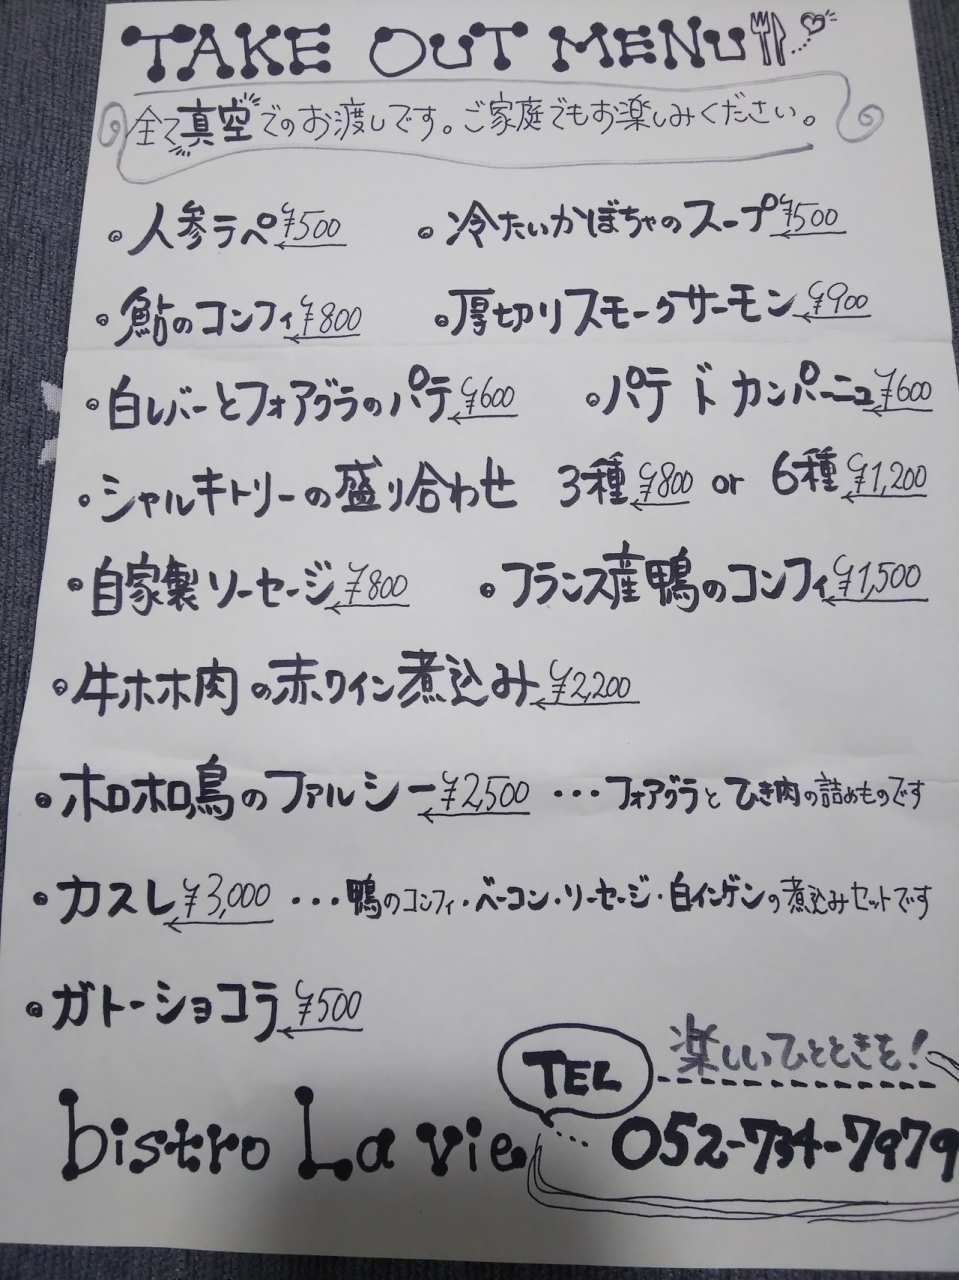 TAKE OUT MENU
全て真空でのお渡しです。ご家庭でもお楽しみください。
人参ラペ ¥500 冷たいかぼちゃのスープ ¥500
鮎のコンフィ ¥800 厚切りスモークサーモン ¥900
白レバーとフォアグラのパテ ¥600 パテ ド カンパーニュ ¥600
シャルキトリーの盛り合わせ 3種 ¥800 or 6種 ¥1,200
自家製ソーセージ ¥800 フランス産鴨のコンフィ ¥1,500
牛ホホ肉の赤ワイン煮込み ¥2,200
ホロホロ鳥のファルシー ¥2,500 …フォアグラとひき肉の詰めものです
カスレ ¥3,000 …鴨のコンフィ・ベーコン・ソーセージ・白インゲンの煮込みセットです
ガトーショコラ ¥500
楽しいひとときを!
TEL … 052-734-7979
bistro La vie